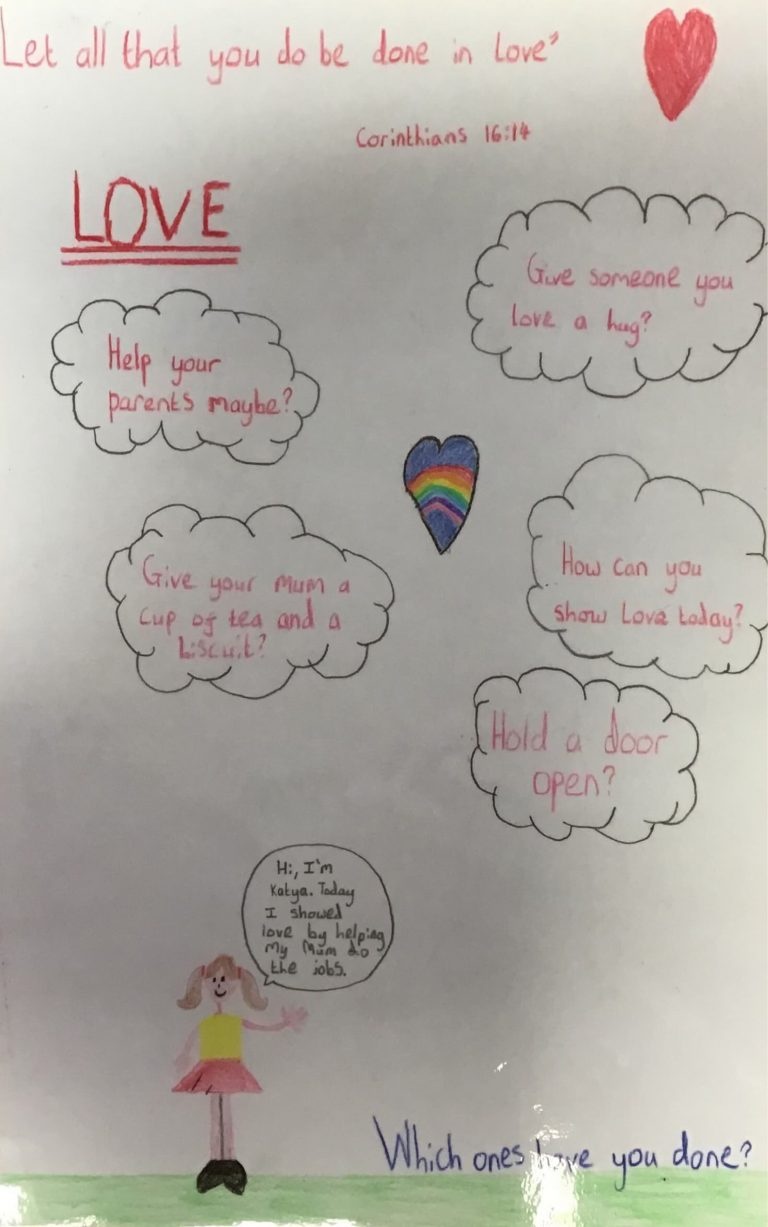 Let all that you do be done in love"
Corinthians 16:14
LOVE
Give someone you
love a hug?
Help your
parents maybe?
How can you
show Love today?
Give your Mum a
cup of tea and a
biscuit?
Hold a door
open?
Hi, I'm
Katya. Today
I showed
love by helping
My Mum do
the jobs.
Which ones have you done?